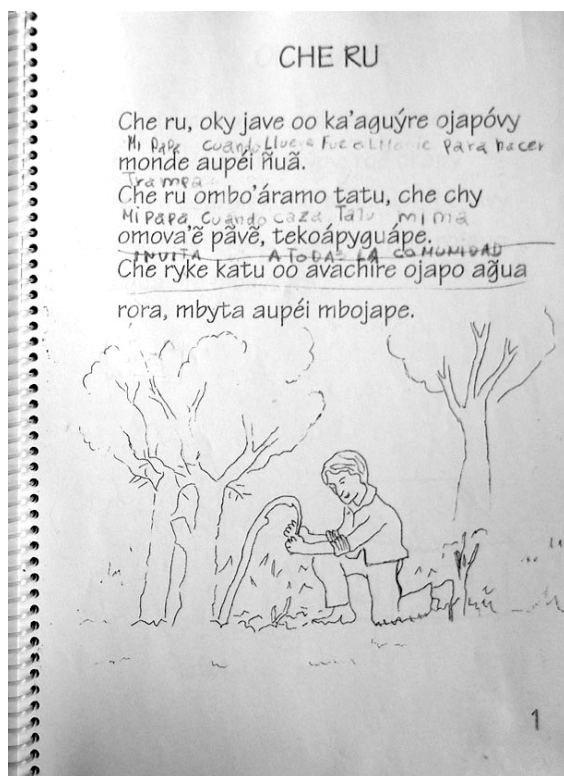 CHE RU
Che ru, oky jave oo ka'aguýre ojapóvy
Mi Papa cuando LLueve Fue al Monte para hacer
monde aupéi ñuã.
Trampa
Che ru ombo'áramo tatu, che chy
Mi Papá, cuando caza Tatu mi má
omova'ẽ pãvẽ, tekoápyguápe.
INVITA A TODAS LA COMUNIDAD
Che ryke katu oo avachire ojapo ag̃ua
rora, mbyta aupéi mbojape.
1